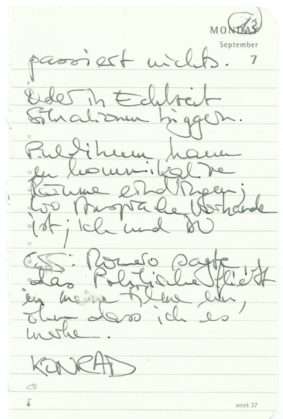 13
MONDAY
September
7
passiert nichts.
oder in Echtzeit
Situationen triggern.
Publikum kann
in kommunikative
Räume eindringen;
wo Ansprache vorhanden
ist; ich und DU
Romero sagte,
das Politische fließt
in meine Filme ein,
ohne dass ich es
merke.
KONRAD
week 37